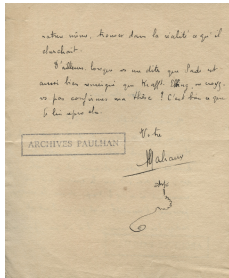 nature même, trouver dans la réalité ce qu'il
cherchait.
D'ailleurs, lorsque vous me dites que Sade est
aussi bien que Krafft-Ebing, ne croyez
vous pas confirmer ma thèse ? C'est bien ce que
je lui
Votre
Malraux
ARCHIVES PAULHAN